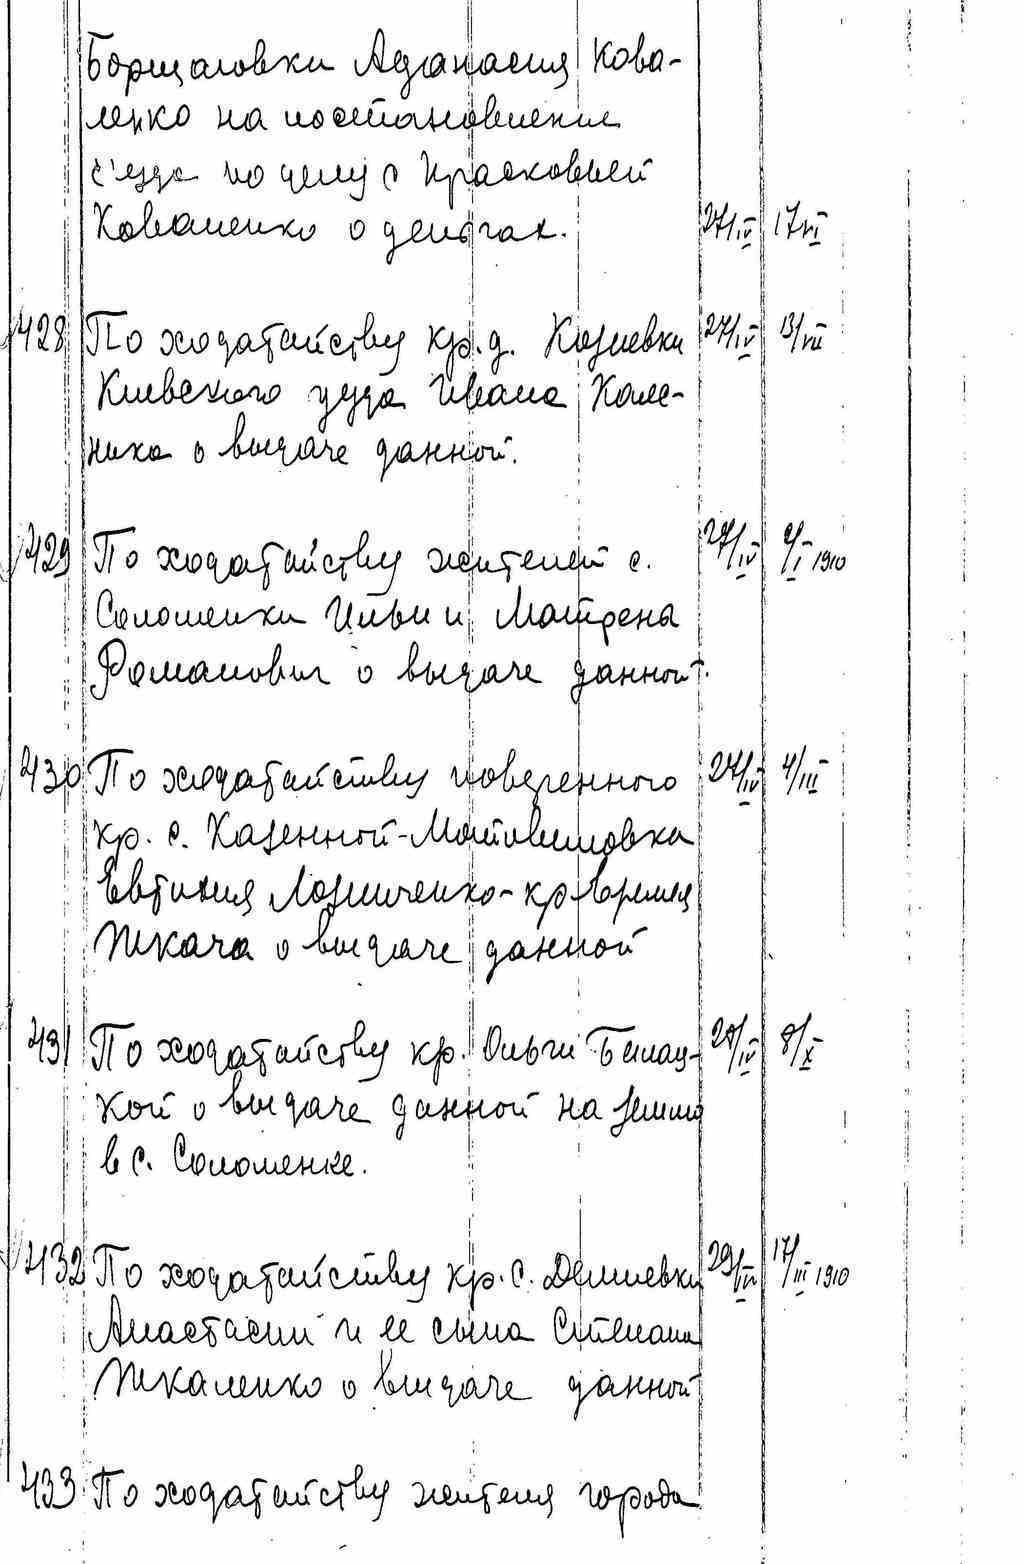 Борщаговки Афанасия Кова-
ленко на постановление
с'езда по делу с Прасковьей
Коваленко о деньгах. 27/IV 17/VI
428 По ходатайству кр. д. Козиевки 27/IV 13/VII
Киевского уезда Ивана Колес-
ника о выдаче данной.
429 По ходатайству жителей с. 27/IV 2/I 1910
Соломенки Ильи и Матрена
Романович о выдаче данной.
430 По ходатайству поверенного 27/IV 4/III
кр. с. Казенной-Мотовиловка
Евтихия Лозниченко - кр Еремея
Ткача о выдаче данной
431 По ходатайству кр. Ольги Билец- 28/IV 8/X
кой о выдаче данной на землю
в с. Соломенке.
432 По ходатайству кр. с. Демиевки 29/IV 17/III 1910
Анастасии и ее сына Степана
Шкаленко о выдаче данной
433 По ходатайству жителя города